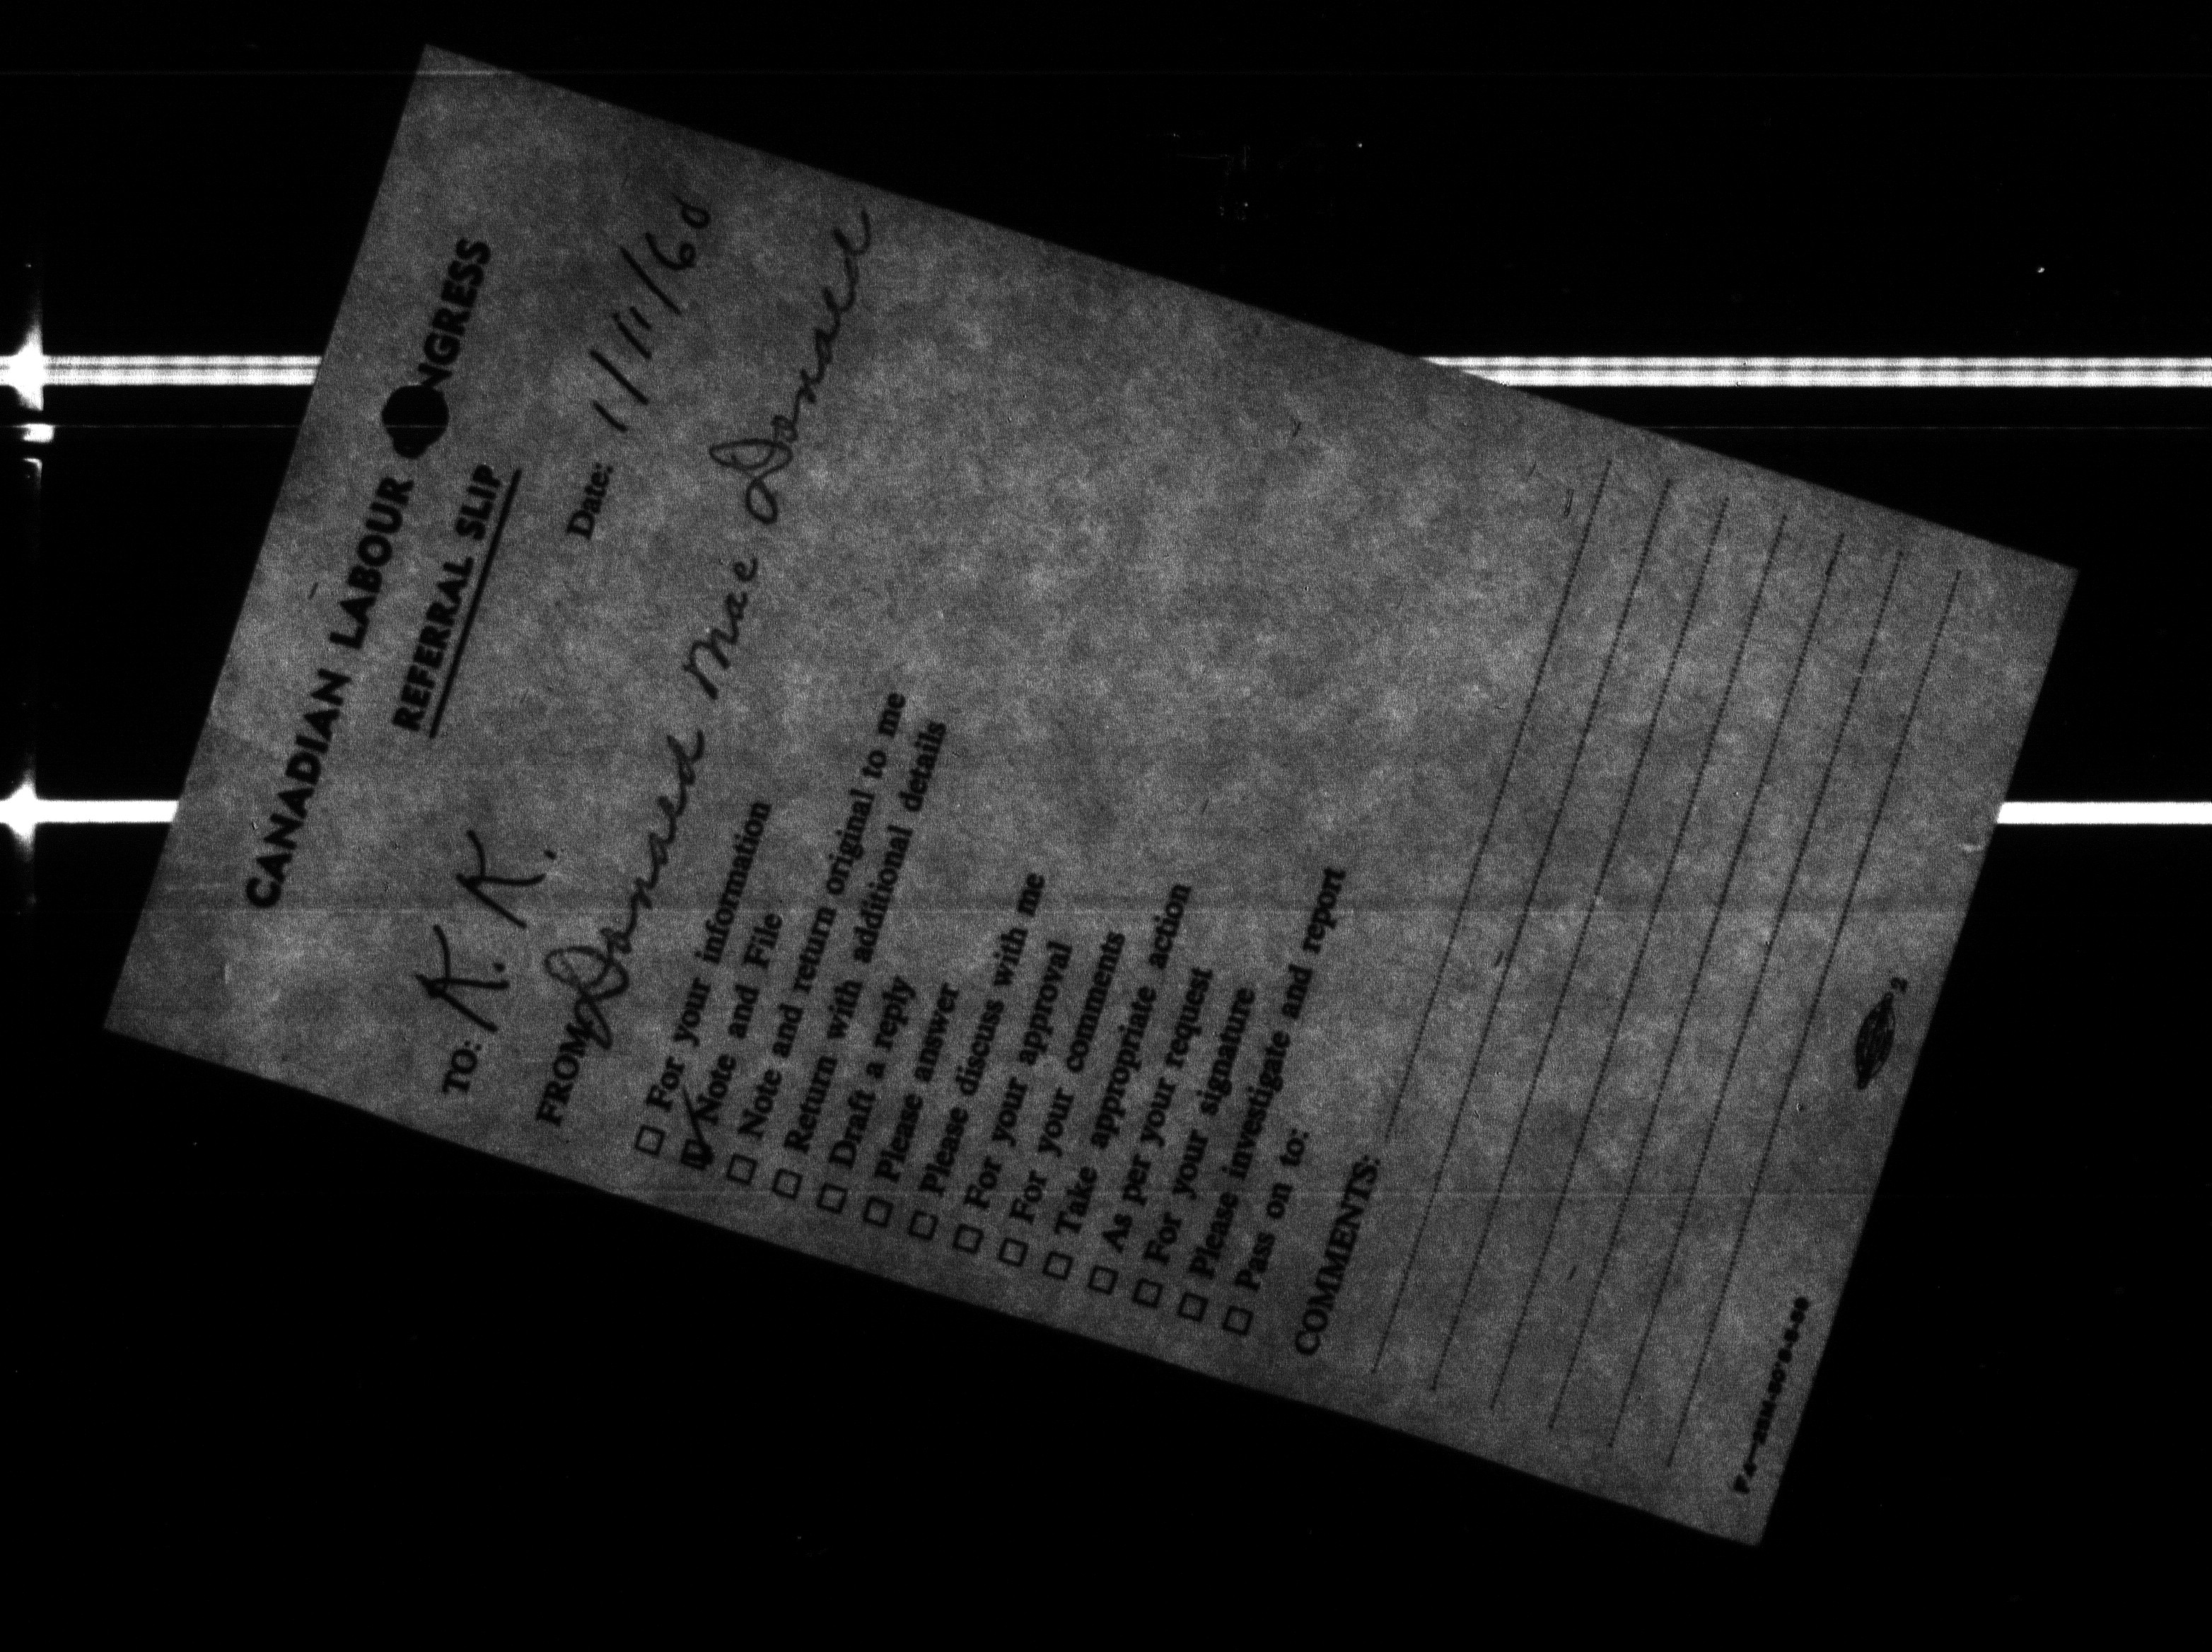 CANADIAN LABOUR CONGRESS
REFERRAL SLIP
Date: 1/11/60
TO: K. K.
FROM Donald MacDonald
☐ For your information
☑ Note and File
☐ Note and return original to me
☐ Return with additional details
☐ Draft a reply
☐ Please answer
☐ Please discuss with me
☐ For your approval
☐ For your comments
☐ Take appropriate action
☐ As per your request
☐ For your signature
☐ Please investigate and report
☐ Pass on to:
COMMENTS:
2